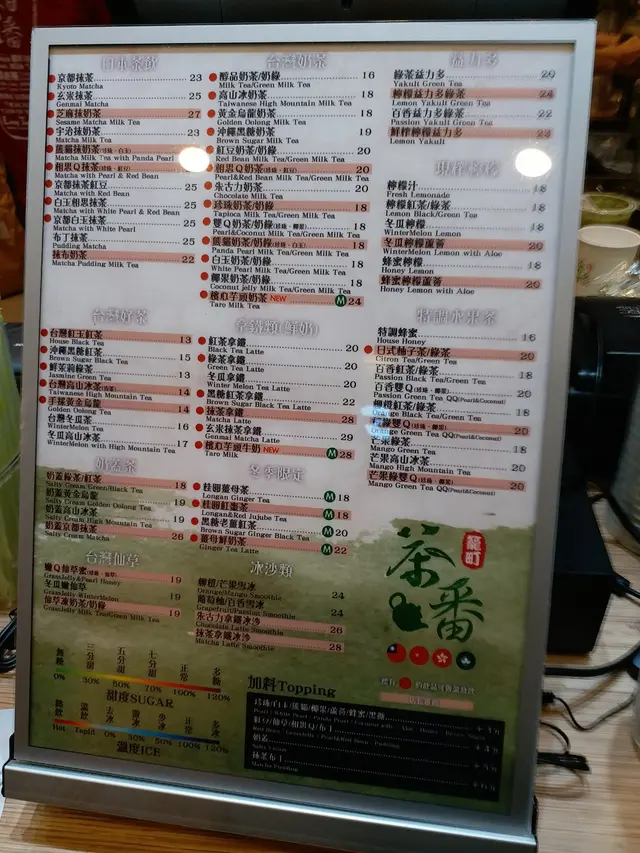 日本茶飲
京都抹茶 23
Kyoto Matcha
玄米抹茶 25
Genmai Matcha
芝麻抹奶茶 27
Sesame Matcha Milk Tea
宇治抹奶茶 23
Matcha Milk Tea
熊貓抹奶茶(珍珠、白玉)
Matcha Milk Tea with Panda Pearl
相思Q抹茶(珍珠、紅豆)
Matcha with Pearl & Red Bean
京都抹茶紅豆 25
Matcha with Red Bean
白玉相思抹茶 25
Matcha with White Pearl & Red Bean
京都白玉抹茶 25
Matcha with White Pearl
布丁抹茶 25
Pudding Matcha
抹布奶茶 22
Matcha Pudding Milk Tea
台灣奶茶
醇品奶茶/奶綠 16
Milk Tea/Green Milk Tea
高山冰奶茶 18
Taiwanese High Mountain Milk Tea
黃金烏龍奶茶 18
Golden Oolong Milk Tea
沖繩黑糖奶茶 19
Brown Sugar Milk Tea
紅豆奶茶/奶綠 20
Red Bean Milk Tea/Green Milk Tea
相思Q奶茶(珍珠、紅豆) 20
Pearl&Red Bean Milk Tea/Green Milk Tea
朱古力奶茶 20
Chocolate Milk Tea
珍珠奶茶/奶綠 18
Tapioca Milk Tea/Green Milk Tea
雙Q奶茶/奶綠(珍珠、椰果) 18
Pearl&Coconut Milk Tea/Green Milk Tea
熊貓奶茶/奶綠(珍珠、白玉) 18
Panda Pearl Milk Tea/Green Milk Tea
白玉奶茶/奶綠 18
White Pearl Milk Tea/Green Milk Tea
椰果奶茶/奶綠 18
Coconut Jelly Milk Tea/Green Milk Tea
檳心芋頭奶茶 NEW M 24
Taro Milk Tea
益力多
綠茶益力多 20
Yakult Green Tea
檸檬益力多綠茶 24
Lemon Yakult Green Tea
百香益力多綠茶 22
Passion Yakult Green Tea
鮮榨檸檬益力多 22
Lemon Yakult
現榨檸檬
檸檬汁 18
Fresh Lemonade
檸檬紅茶/綠茶 18
Lemon Black/Green Tea
冬瓜檸檬 18
WinterMelon Lemon
冬瓜檸檬蘆薈 20
WinterMelon Lemon with Aloe
蜂蜜檸檬 18
Honey Lemon
蜂蜜檸檬蘆薈 20
Honey Lemon with Aloe
台灣好茶
台灣紅玉紅茶 13
House Black Tea
沖繩黑糖紅茶 15
Brown Sugar Black Tea
鮮茉莉綠茶 13
Jasmine Green Tea
台灣高山冰茶 14
Taiwanese High Mountain Tea
手採黃金烏龍 14
Golden Oolong Tea
台灣冬瓜茶 16
WinterMelon Tea
冬瓜高山冰茶 17
WinterMelon with High Mountain Tea
拿鐵類(鮮奶)
紅茶拿鐵 20
Black Tea Latte
綠茶拿鐵 20
Green Tea Latte
冬瓜拿鐵 20
Winter Melon Tea Latte
黑糖紅茶拿鐵 22
Brown Sugar Black Tea Latte
抹茶拿鐵 28
Matcha Latte
玄米抹茶拿鐵 29
Genmai Matcha Latte
檳心芋頭牛奶 NEW M 28
Taro Milk
特調水果茶
特調蜂蜜 16
House Honey
日式柚子茶/綠茶 20
Citron Tea/Green Tea
百香紅茶/綠茶 18
Passion Black Tea/Green Tea
百香雙Q(珍珠、椰果) 20
Passion Green Tea QQ(Pearl&Coconut)
香橙紅茶/綠茶 18
Orange Black Tea/Green Tea
橙綠雙Q(珍珠、椰果) 20
Orange Green Tea QQ(Pearl&Coconut)
芒果綠茶 18
Mango Green Tea
芒果高山冰茶 20
Mango High Mountain Tea
芒果綠雙Q(珍珠、椰果) 20
Mango Green Tea QQ(Pearl&Coconut)
奶蓋茶
奶蓋綠茶/紅茶 18
Salty Cream Green/Black Tea
奶蓋黃金烏龍 20
Salty Cream Golden Oolong Tea
奶蓋高山冰茶 18
Salty Cream High Mountain Tea
奶蓋京都抹茶 26
Salty Cream Matcha
冬季限定
桂圓薑母茶 M 18
Longan Ginger Tea
桂圓紅棗茶 M 18
Longan&Red Jujube Tea
黑糖老薑紅茶 M 20
Brown Sugar Ginger Black Tea
薑母鮮奶茶 M 22
Ginger Tea Latte
台灣仙草
嫩Q仙草蜜(珍珠、仙草) 19
GrassJelly&Pearl Honey
冬瓜嫩仙草 19
GrassJelly WinterMelon
仙草凍奶茶/奶綠 19
GrassJelly Milk Tea/Green Milk Tea
冰沙類
柳橙/芒果雪冰 24
Orange/Mango Smoothie
葡萄柚/百香雪冰 24
Grapefruit/Passion Smoothie
朱古力拿鐵冰沙 26
Chocolate Latte Smoothie
抹茶拿鐵冰沙 28
Matcha Latte Smoothie
龍町
茶番
無糖 三分甜 五分甜 七分甜 正常 多糖
0% 30% 50% 70% 100% 120%
甜度SUGAR
熱 溫飲 去冰 微冰 少冰 正常 多冰
Hot Tapid 0% 30% 50% 100% 120%
溫度ICE
加料Topping
珍珠/白玉/熊貓/椰果/蘆薈/蜂蜜/黑糖
奶茶
Salty Cream
抹茶布丁
Matcha Pudding